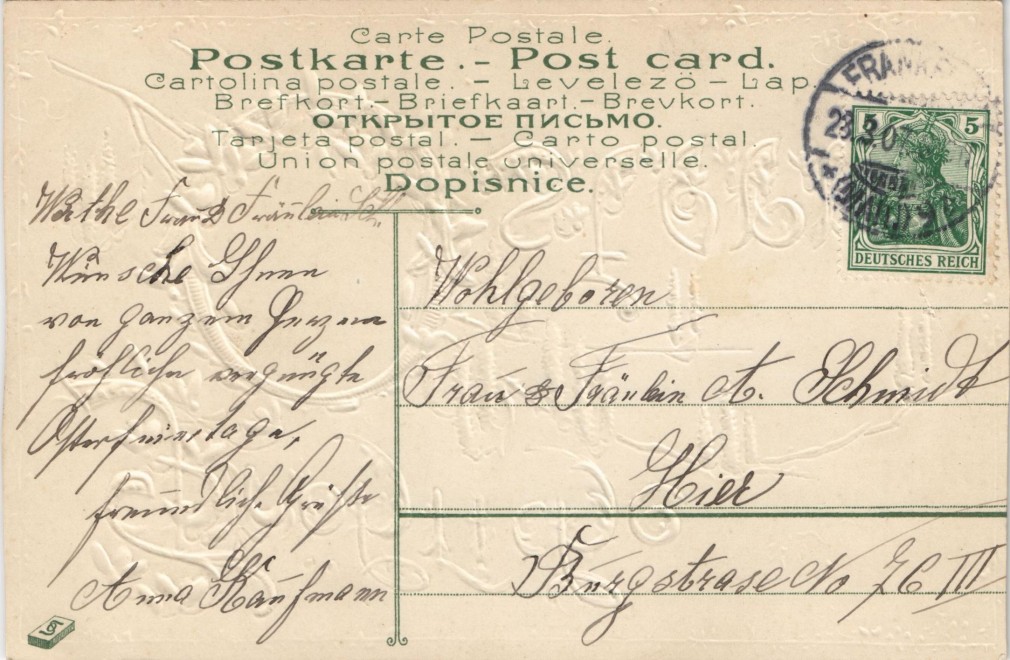 Carte Postale.
Postkarte. - Post card.
Cartolina postale. - Levelező - Lap.
Brefkort. - Briefkaart. - Brevkort.
ОТКРЫТОЕ ПИСЬМО.
Tarjeta postal. - Carto postal.
Union postale universelle.
Dopisnice.
FRANKF
(MAIN)
5 5
DEUTSCHES REICH
Werthe Frau & Fräulein Sch.
Wünsche Ihnen
von ganzem Herzen
fröhliche vergnügte
Osterfeiertage,
freundliche Grüße
Anna Kaufmann
Wohlgeboren
Frau & Fräulein A. Schmidt
Hier
Burgstrase No 76 III